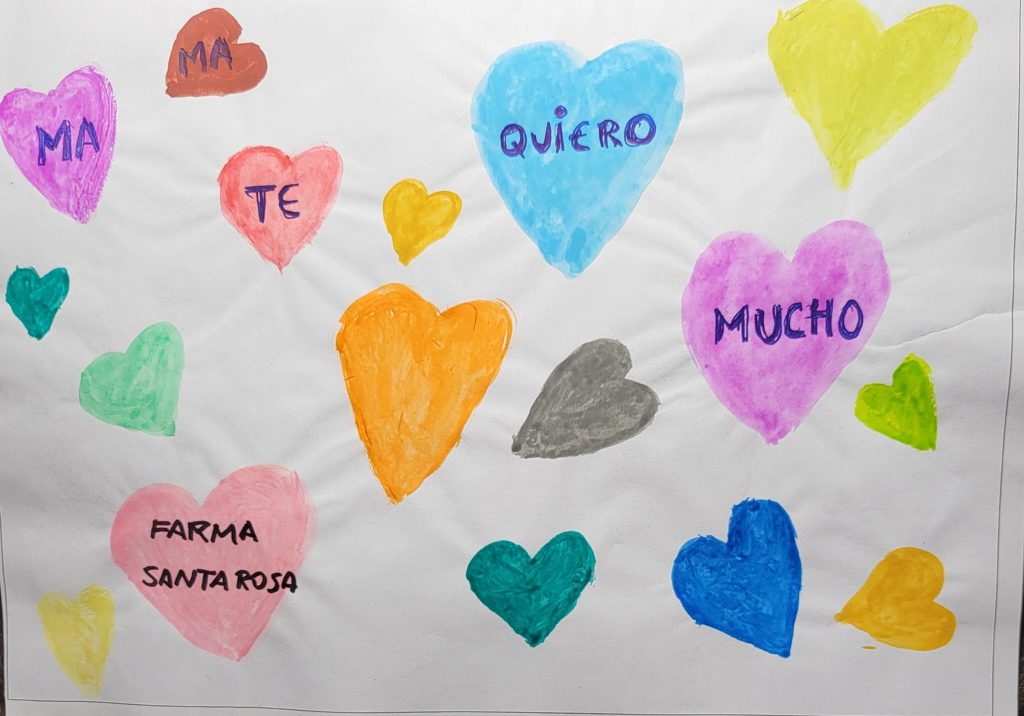 MA
MA
TE
QUIERO
MUCHO
FARMA
SANTA ROSA